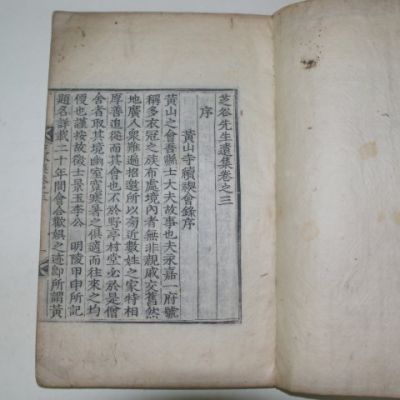 芝谷先生遺集卷之三
序
黃山寺續禊會錄序
黃山之會吾縣士大夫故事也夫永嘉一府號
稱多衣冠之族布處境內者無非親戚交舊然
地廣人衆難遍招邀所以菊近數姓之家特相
厚善追從而其會也不於野亭村堂必於是僧
舍者取其境幽室寬寒暑之俱適而往來之均
便也謹按故徵士景玉李公 明陵甲申所記
題名詳載二十年間會合歡娛之迹卽所謂黃